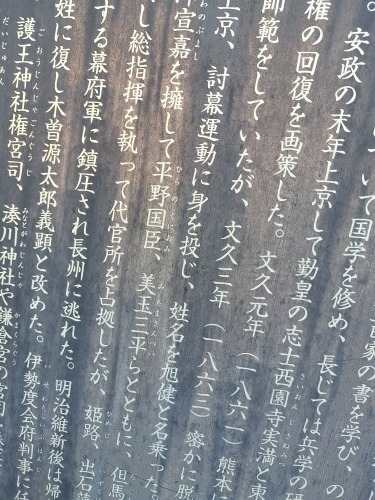 百家の書を学び、の
について国学を修め、長じては兵学の
。安政の末年上京して勤皇の志士西園寺実満と東
権の回復を画策した。文久元年（一八六一）熊本に
師範をしていたが、文久三年（一八六三）密かに脱
上京、討幕運動に身を投じ、姓名を旭健と名乗った。
宣嘉を擁して平野国臣、美玉三平らとともに、但馬
し総指揮を執って代官所を占拠したが、姫路、出石
する幕府軍に鎮圧され長州に逃れた。明治維新後は帰
姓に復し木曽源太郎義顕と改めた。伊勢度会府判事に任
護王神社権宮司、湊川神社や鎌倉宮の宮司